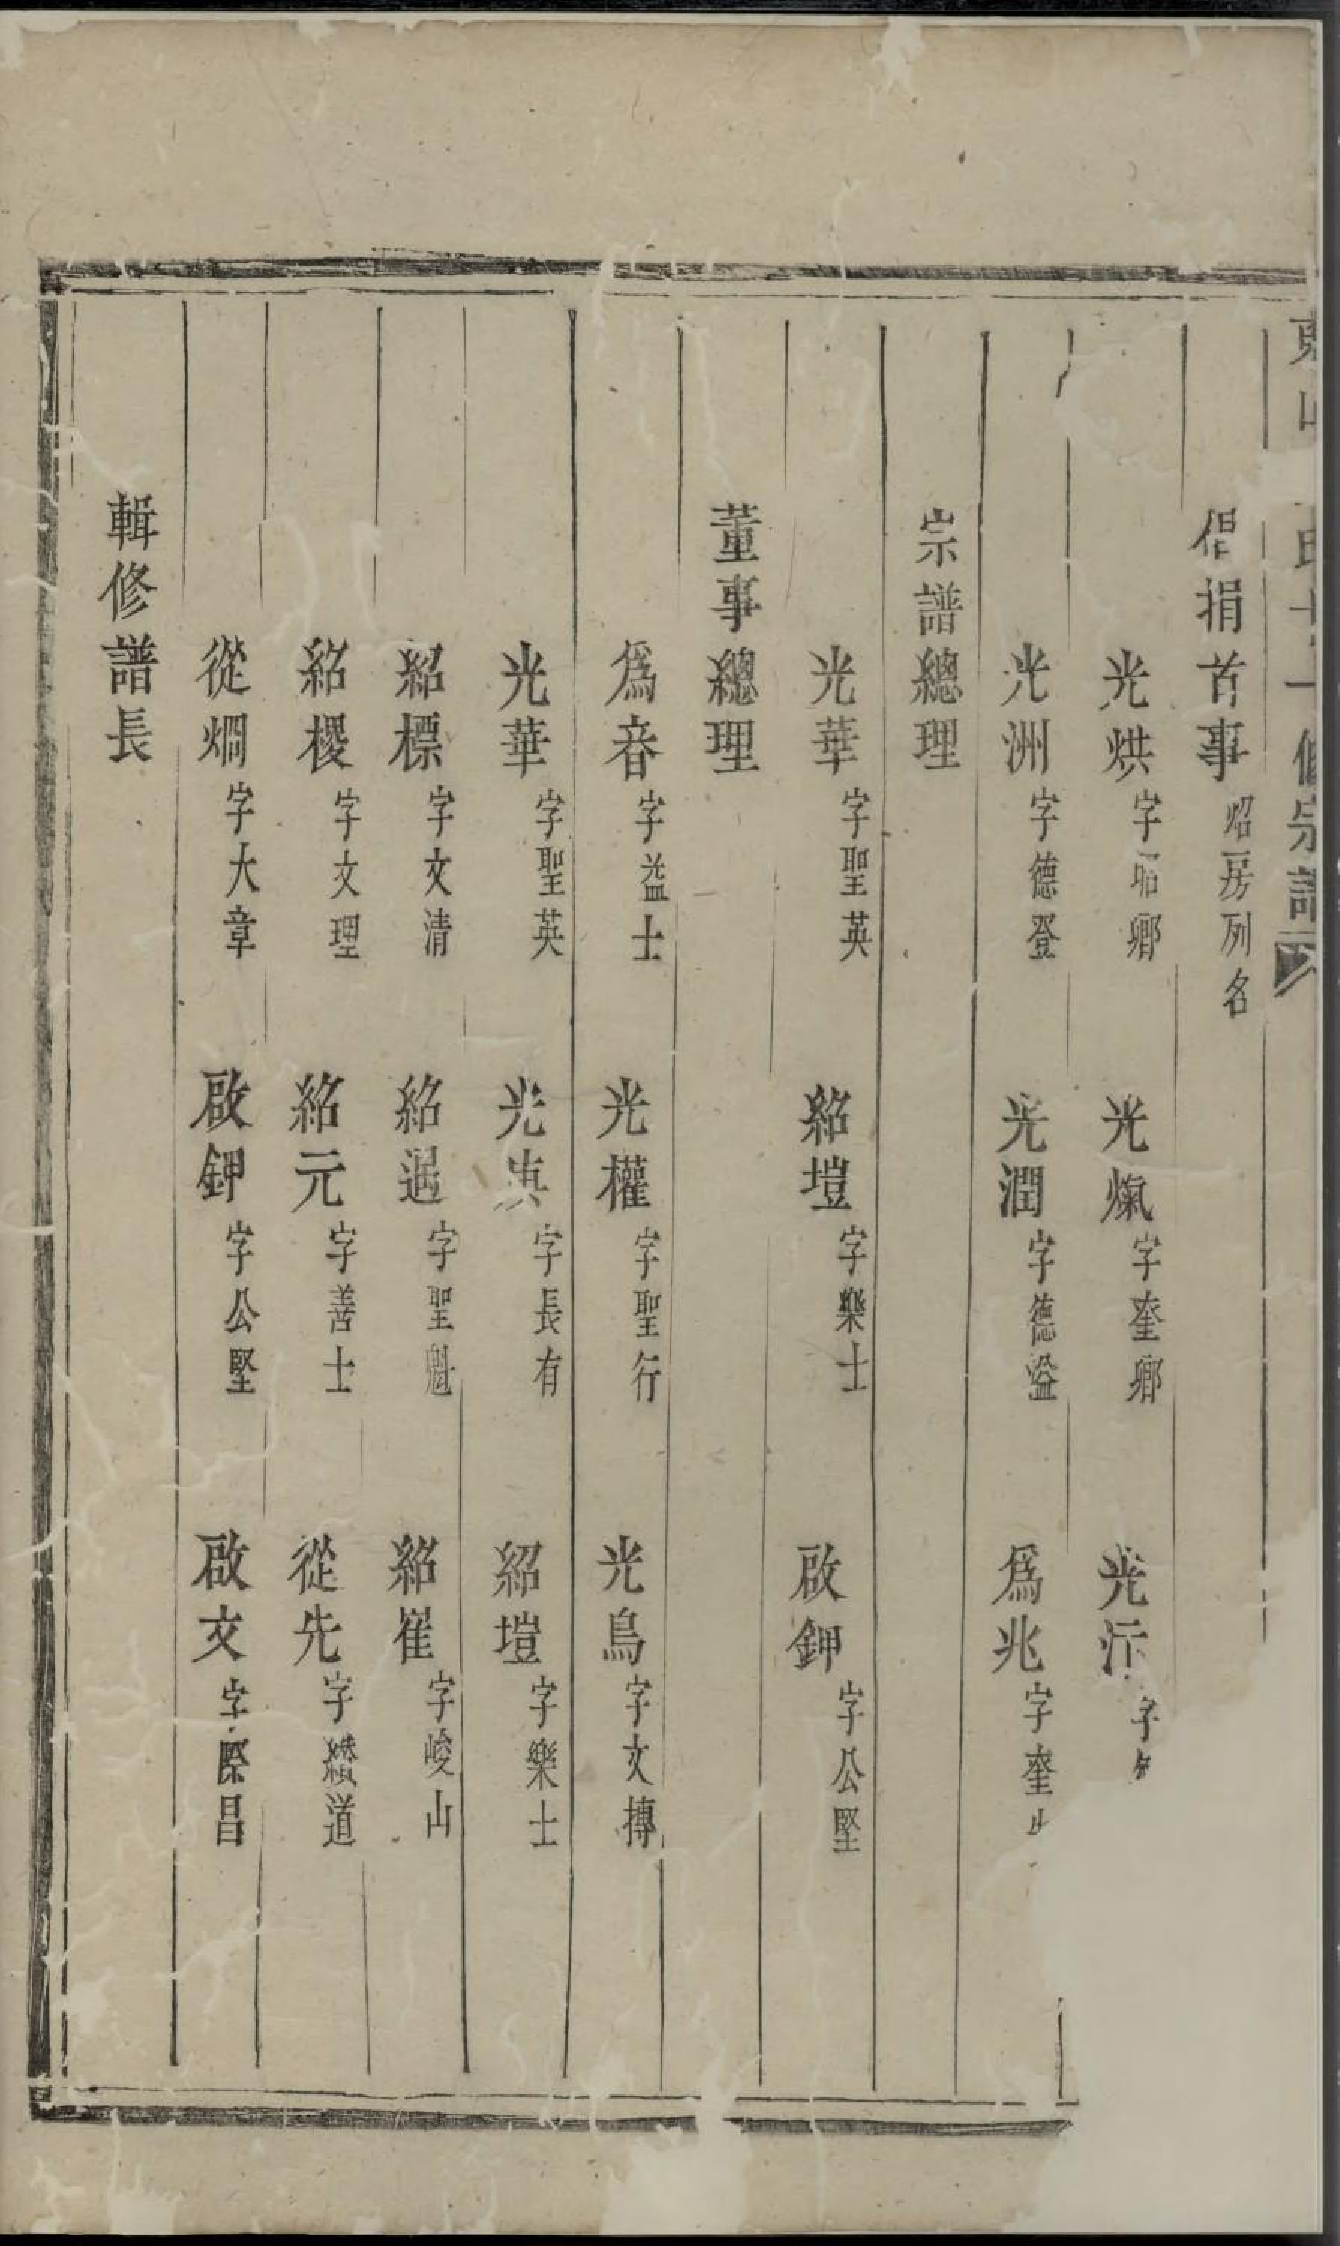 倡捐首事 昭房列名
光烘 字昭卿 光熂 字奎卿 光汻 字
光洲 字德登 光潤 字德溢 為兆 字奎
宗譜總理
光華 字聖英 紹塏 字樂士 啟鉀 字公堅
董事總理
為音 字益士 光權 字聖行 光烏 字文摶
光華 字聖英 光 字長有 紹塏 字樂士
紹標 字文清 紹遇 字聖魁 紹崔 字峻山
紹稷 字文理 紹元 字善士 從先 字纘道
從烱 字大章 啟鉀 字公堅 啟文 字際昌
輯修譜長